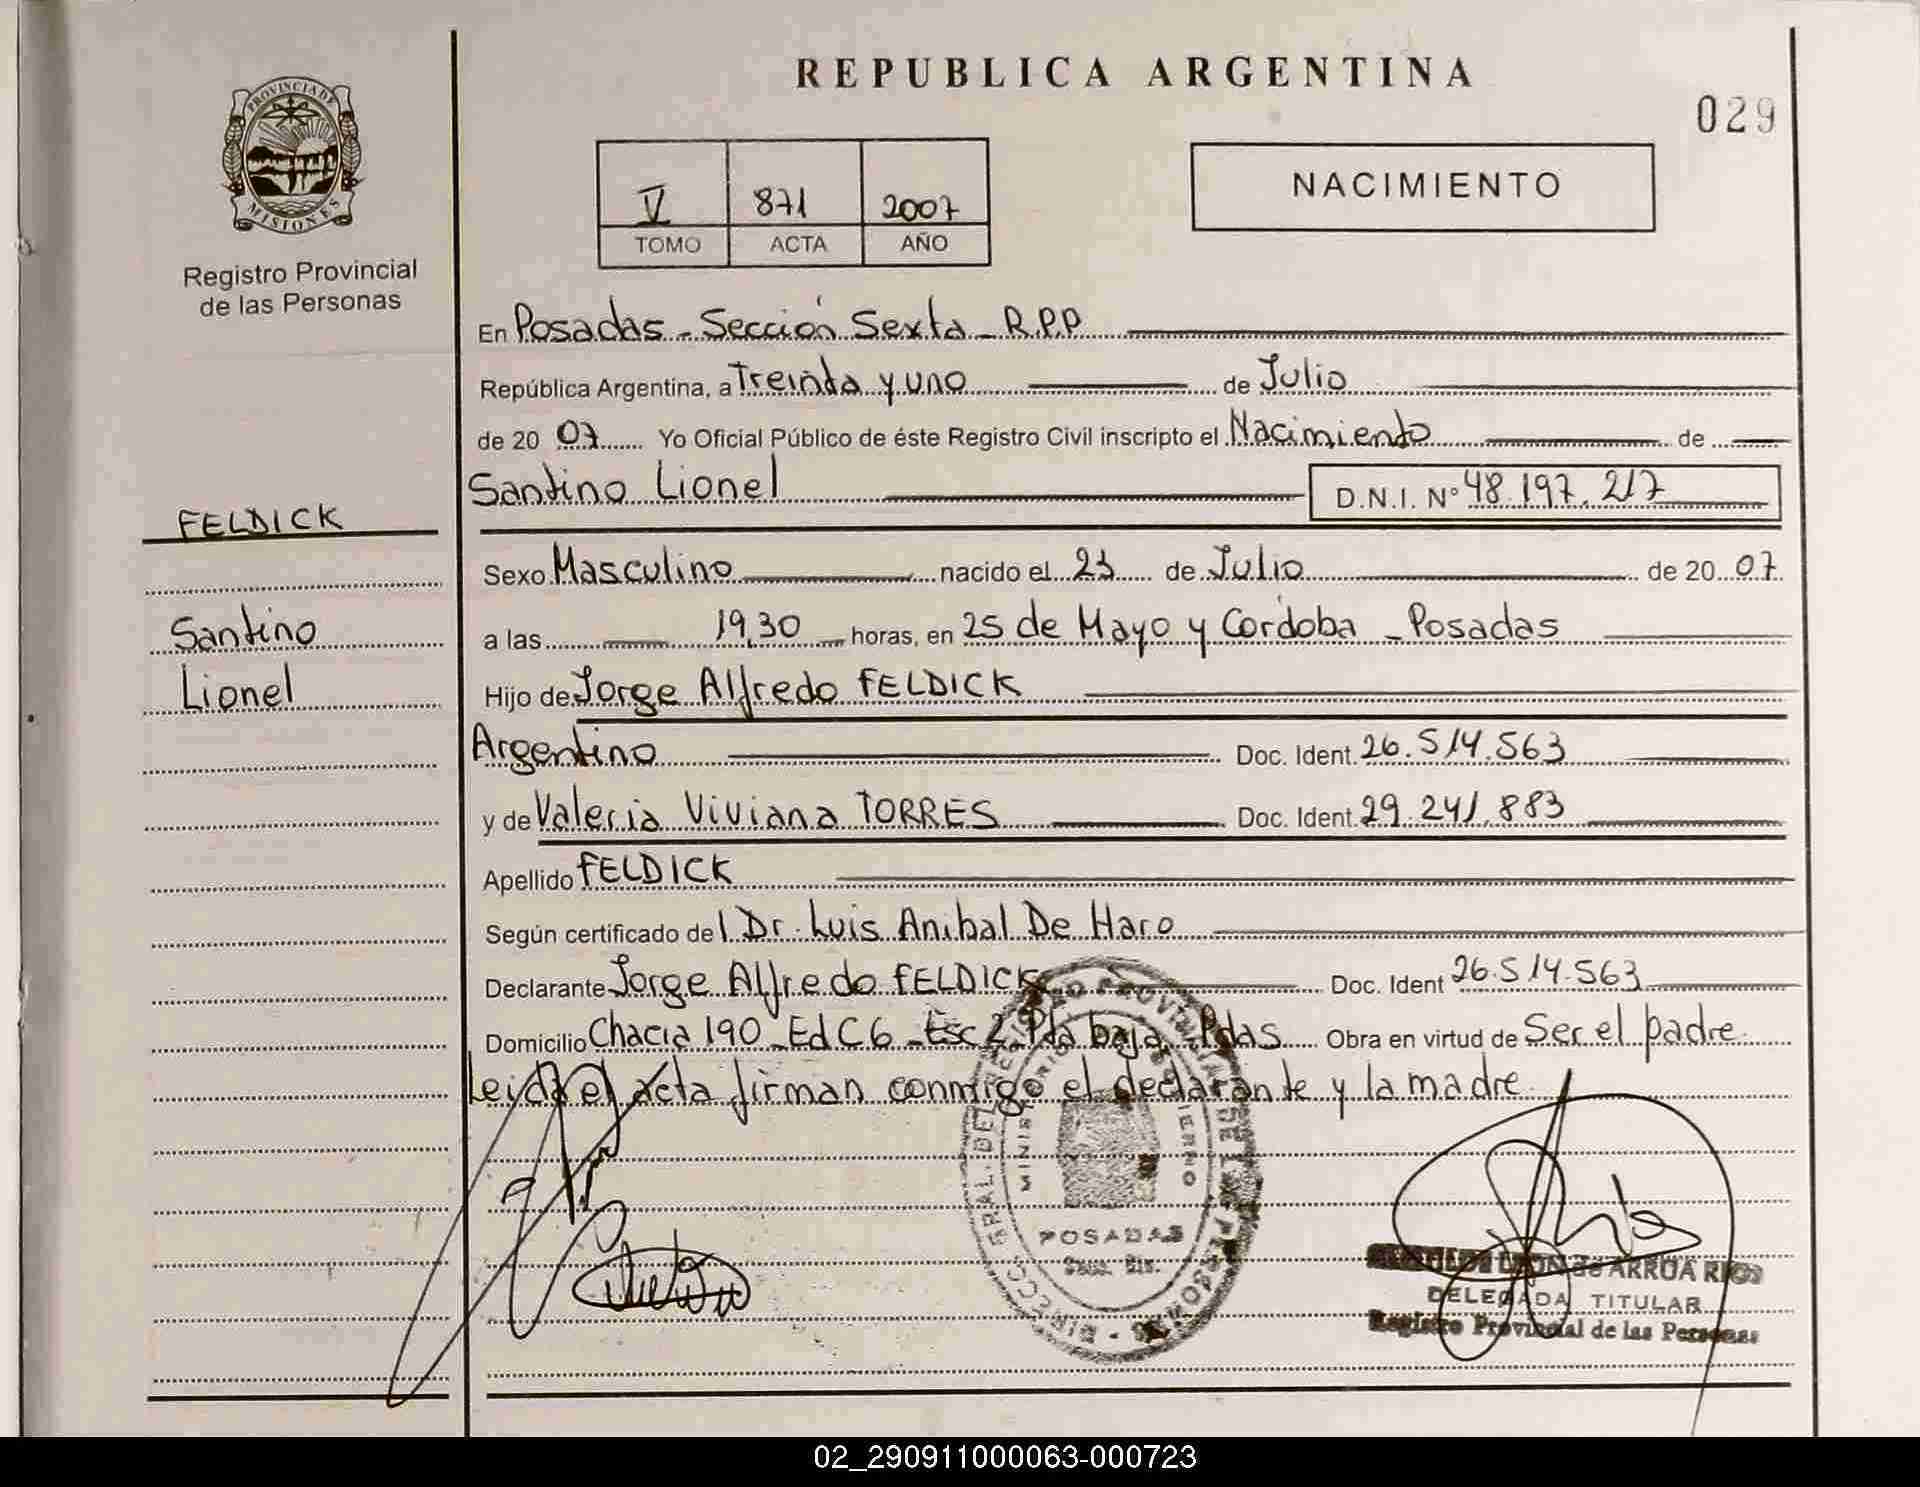 REPUBLICA ARGENTINA
029
PROVINCIA DE
MISIONES
Registro Provincial
de las Personas
V 871 2007
TOMO ACTA AÑO
NACIMIENTO
En Posadas - Sección Sexta - R.P.P
República Argentina, a Treinta y uno de Julio
de 20 07 Yo Oficial Público de éste Registro Civil inscripto el Nacimiento de
Santino Lionel D.N.I. Nº 48.197.217
FELDICK
Santino
Lionel
Sexo Masculino nacido el 23 de Julio de 20 07
a las 19,30 horas, en 25 de Mayo y Córdoba - Posadas
Hijo de Jorge Alfredo FELDICK
Argentino Doc. Ident. 26.514.563
y de Valeria Viviana TORRES Doc. Ident. 29.241.883
Apellido FELDICK
Según certificado del Dr. Luis Anibal De Haro
Declarante Jorge Alfredo FELDICK Doc. Ident 26.514.563
Domicilio Chacra 190 - Ed C6 - Esc 2 Pta baja - Pdas Obra en virtud de Ser el padre.
Leida el acta firman conmigo el declarante y la madre.
POSADAS
LEON de ARRUA RIOS
DELEGADA TITULAR
Registro Provincial de las Personas
02_290911000063-000723